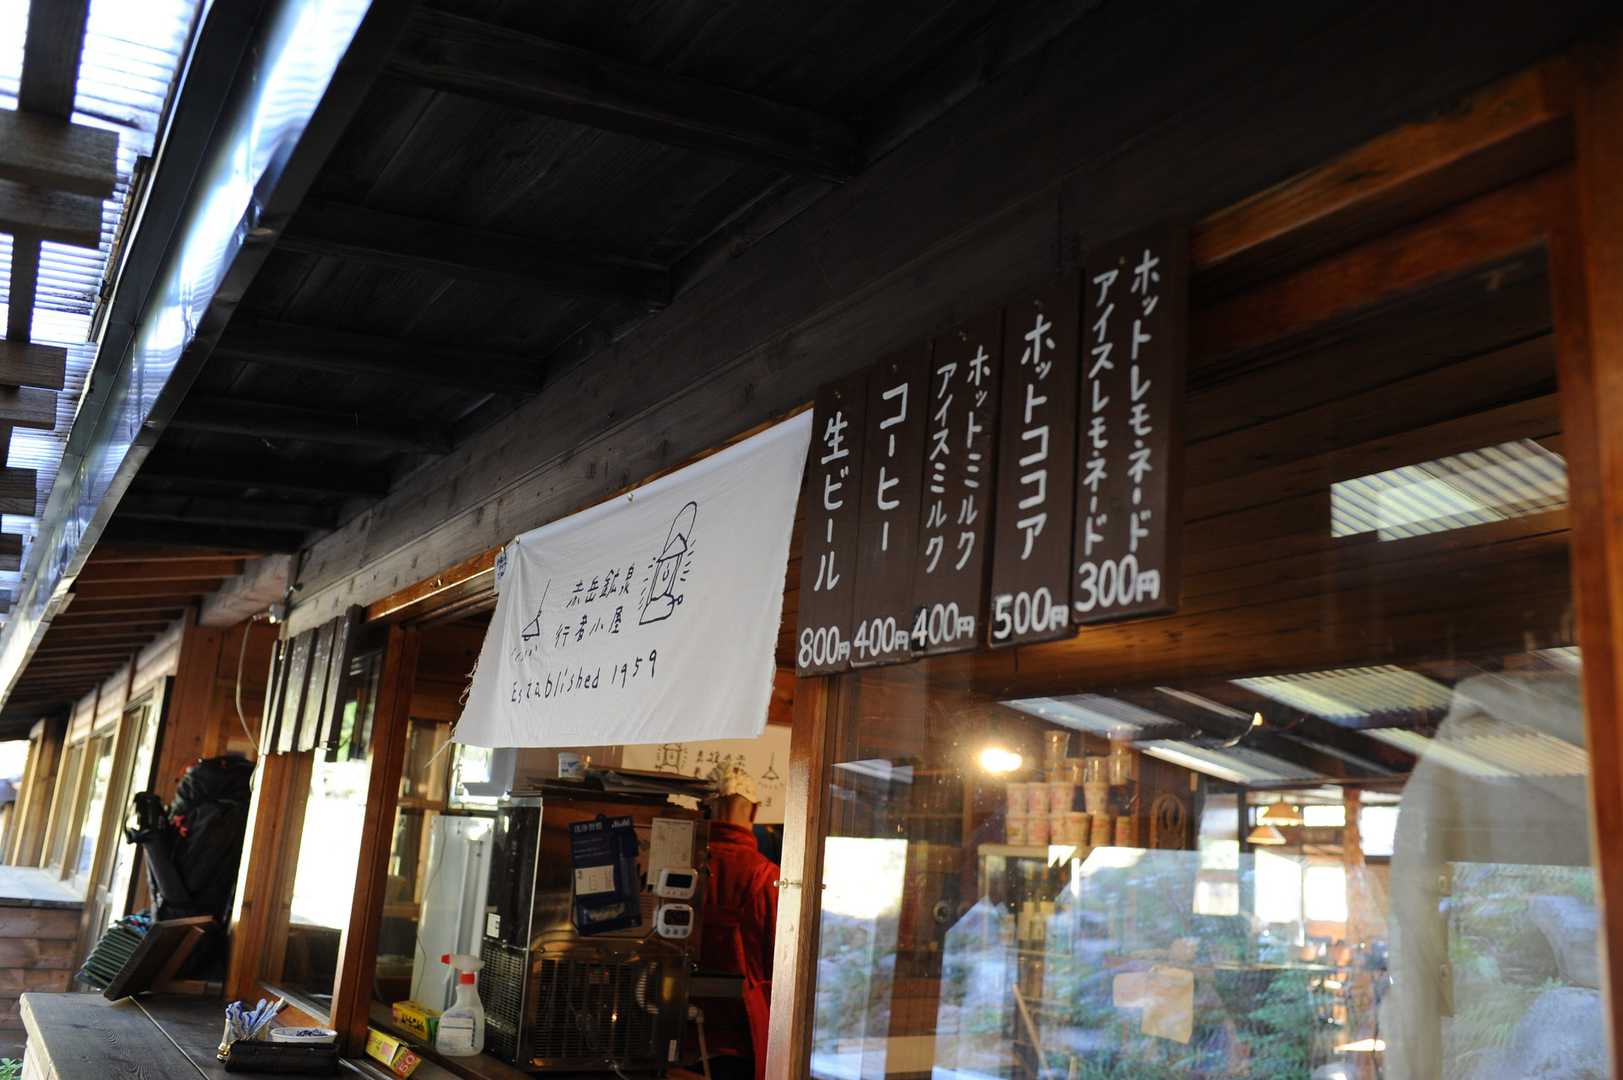 赤岳鉱泉
行者小屋
Established 1959
生ビール
800円
コーヒー
400円
ホットミルク
アイスミルク
400円
ホットココア
500円
ホットレモネード
アイスレモネード
300円